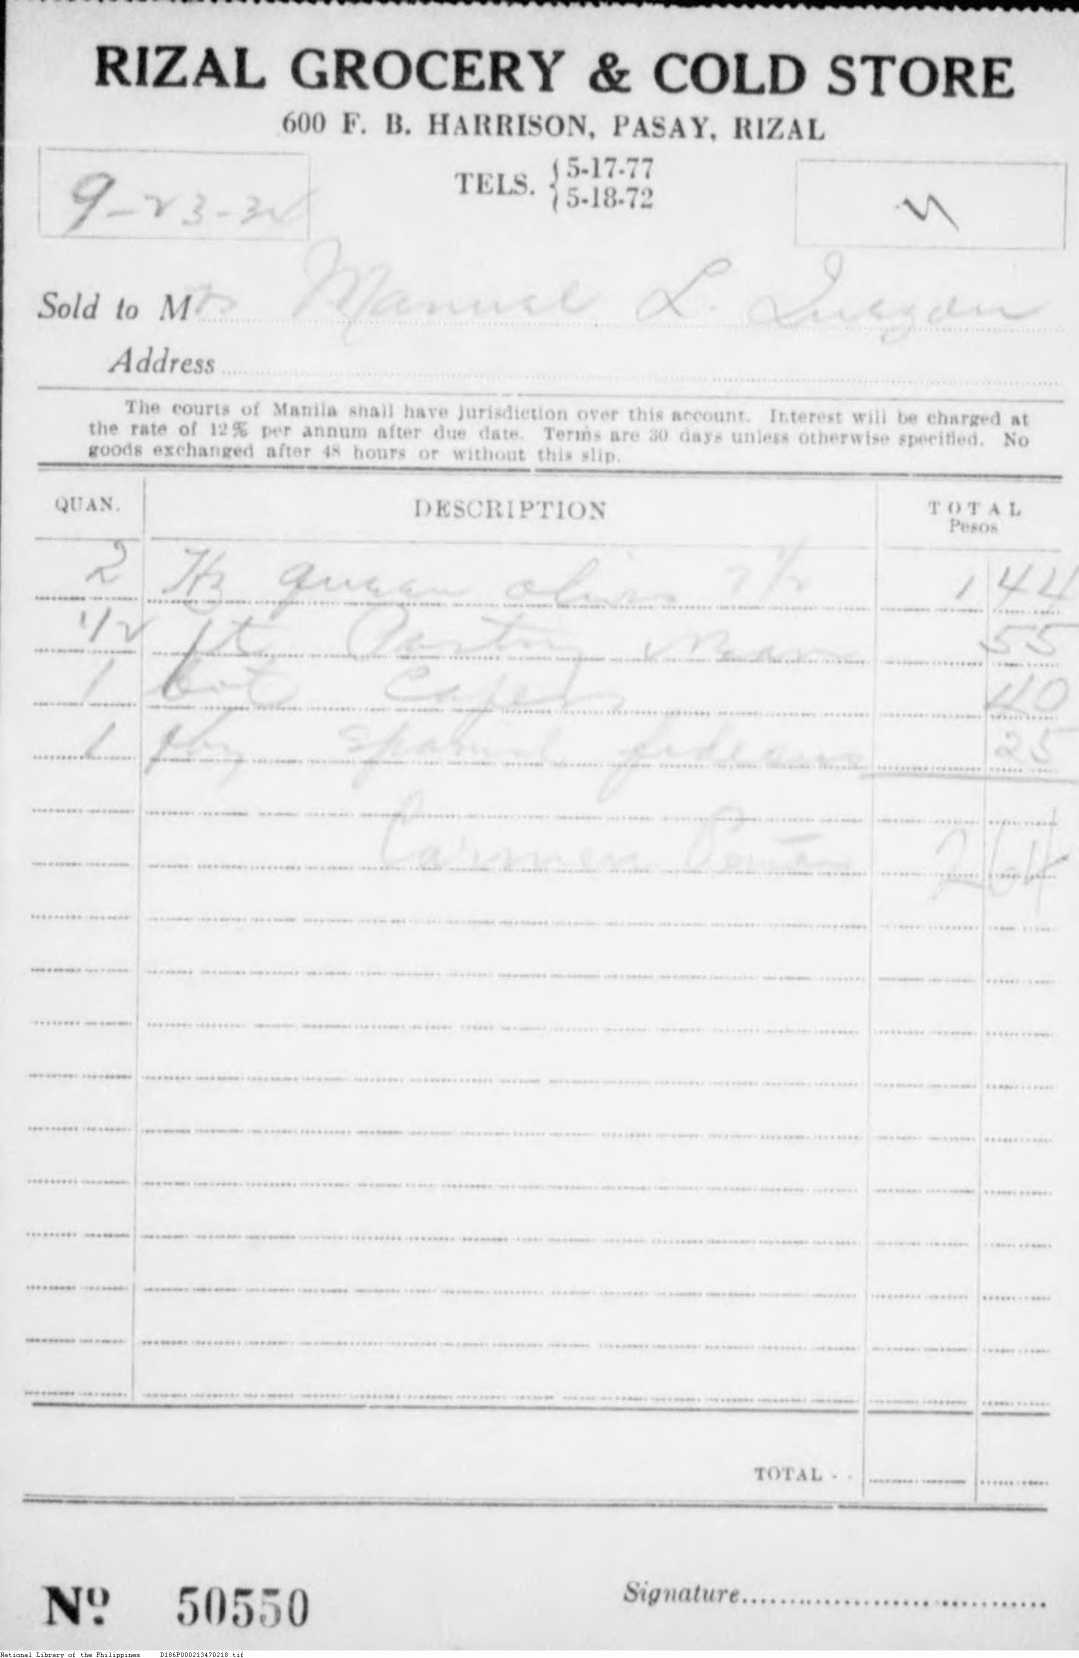 RIZAL GROCERY & COLD STORE
600 F. B. HARRISON, PASAY, RIZAL
TELS. { 5-17-77
5-18-72
9-23-3
Sold to Mrs Manuel L. Quezon
Address
The courts of Manila shall have jurisdiction over this account. Interest will be charged at
the rate of 12% per annum after due date. Terms are 30 days unless otherwise specified. No
goods exchanged after 48 hours or without this slip.
QUAN. DESCRIPTION TOTAL
Pesos
2 queen olives 7½ 1 44
1/2 Pastry 55
1 bot Capers 40
1 pkg Spanish fideos 25
Carmen 2 64
TOTAL - -
Nº 50550 Signature
National Library of the Philippines D186P000213470218.tif